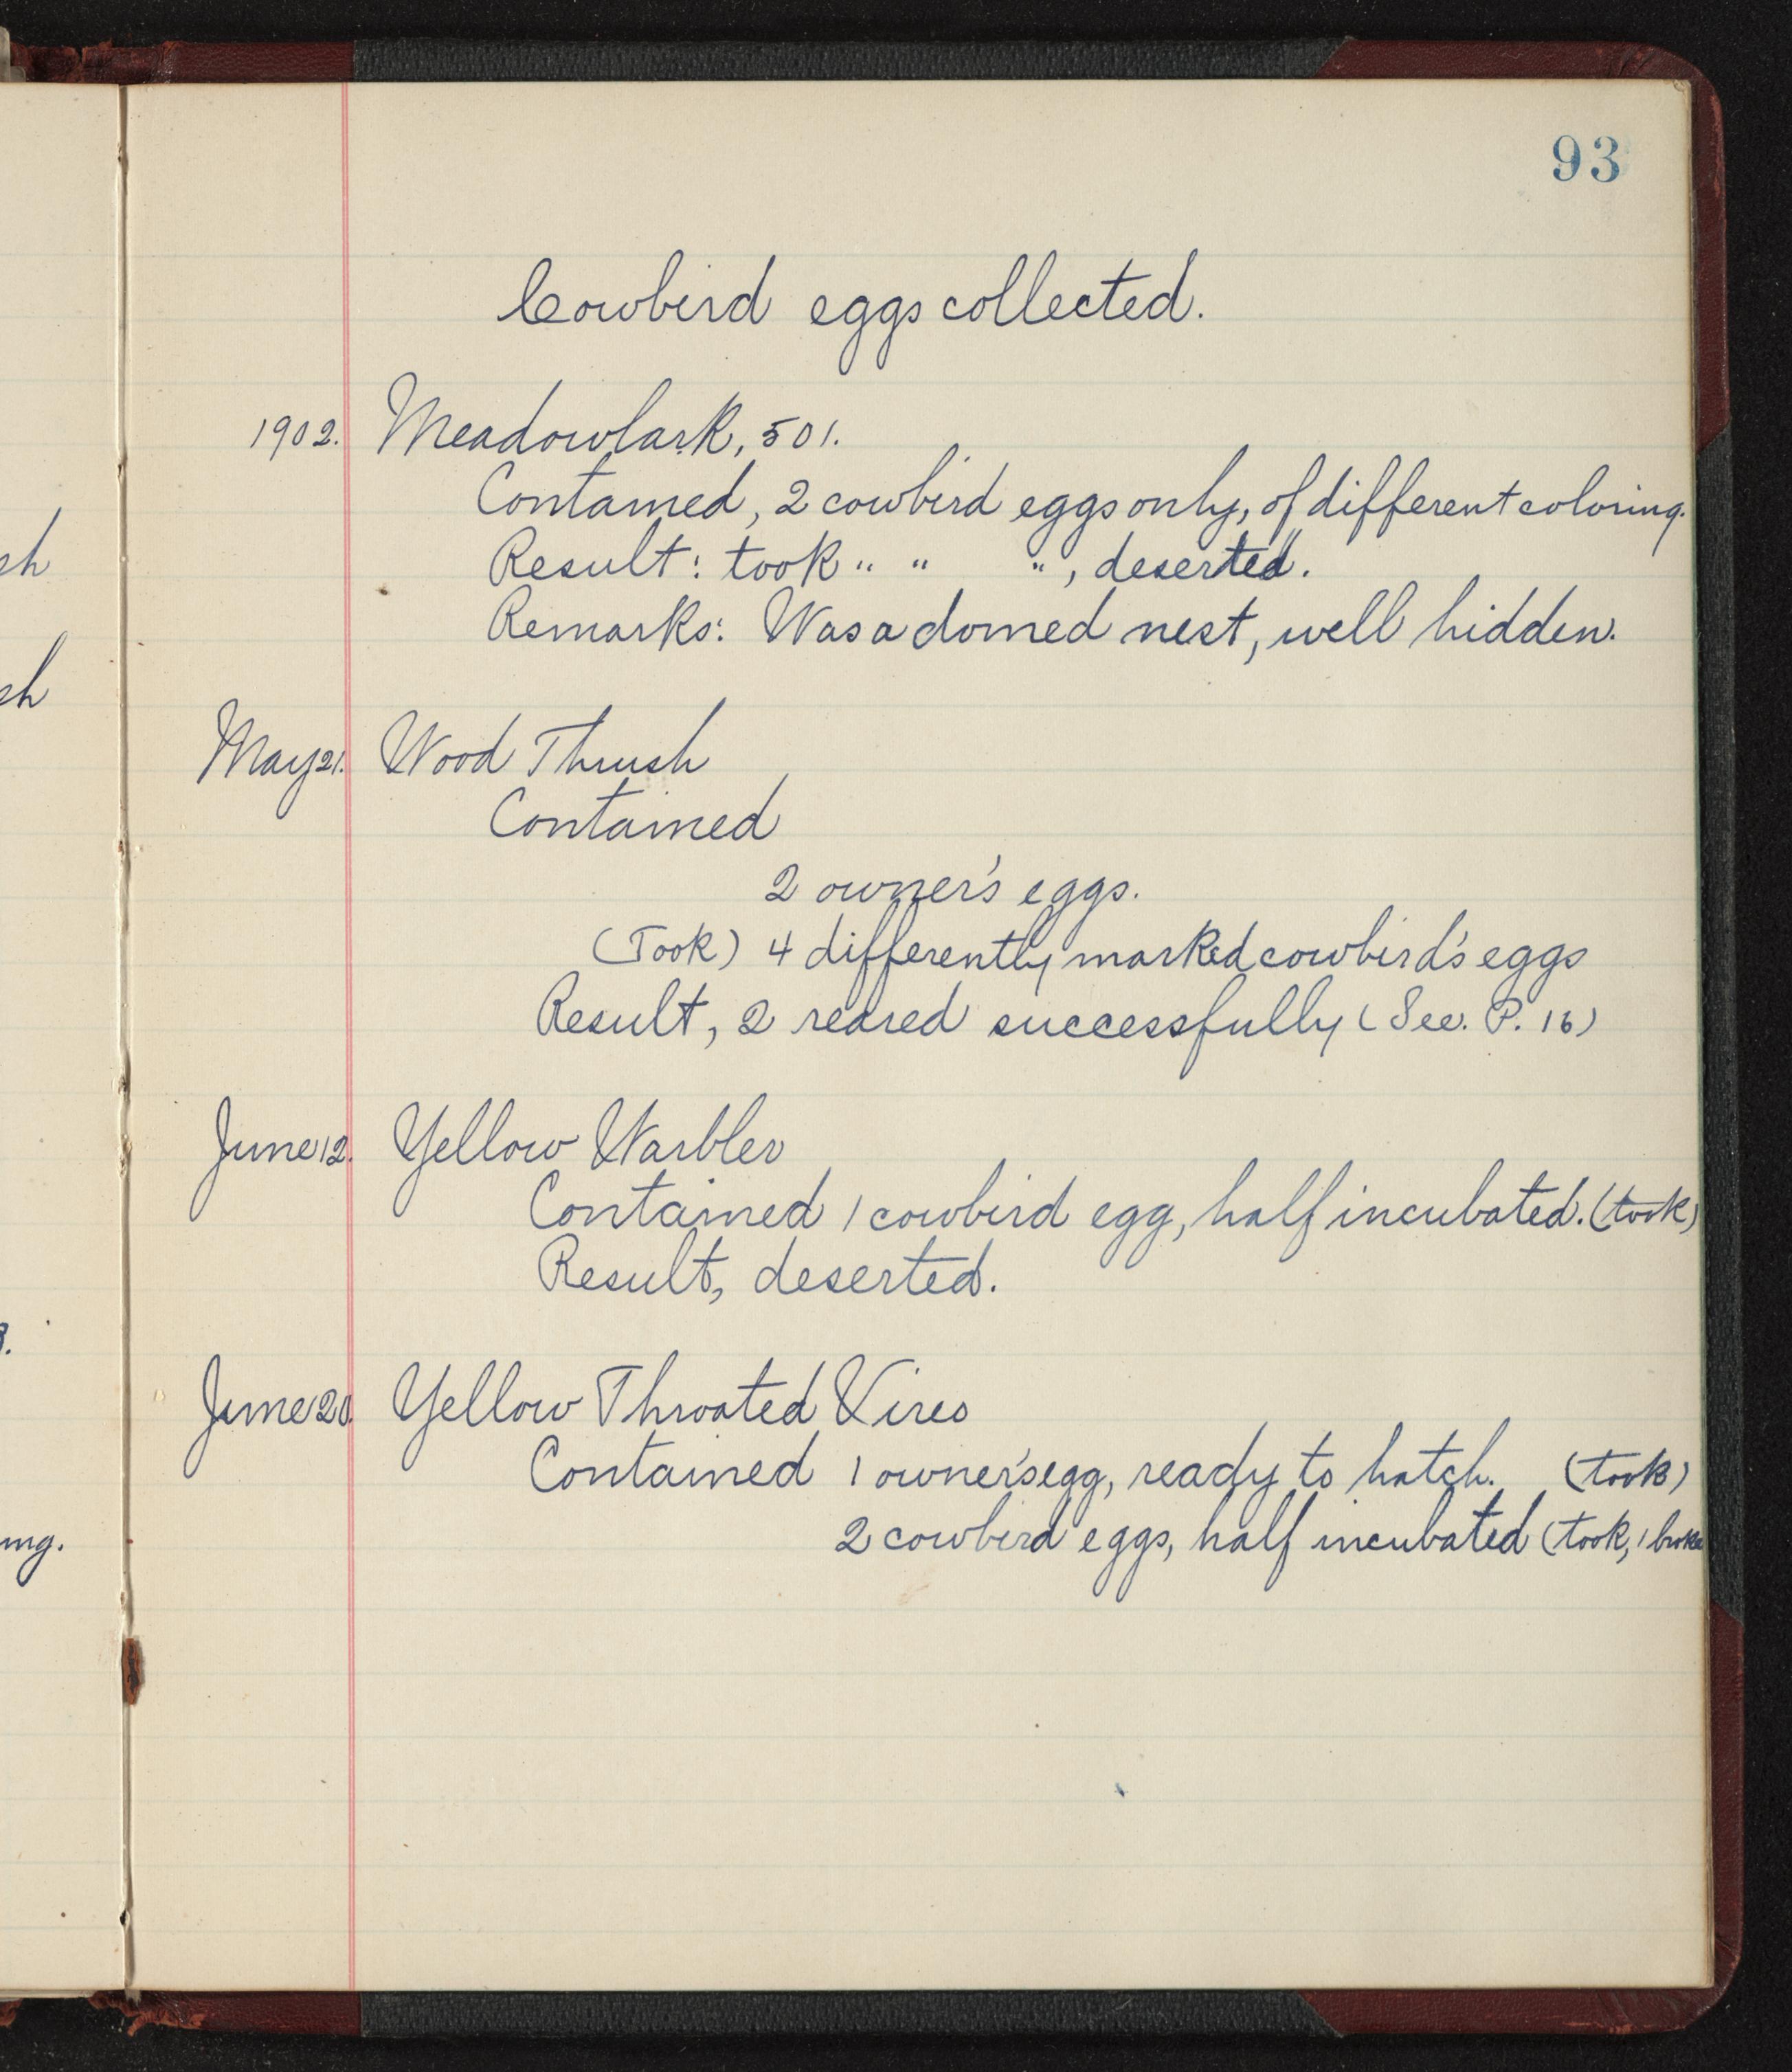 93
Cowbird eggs collected.
1902. Meadowlark, 501.
Contained, 2 cowbird eggs only, of different coloring.
Result: took " " ", deserted.
Remarks: Was a domed nest, well hidden.
May 21. Wood Thrush
Contained
2 owner's eggs.
(Took) 4 differently marked cowbird's eggs
Result, 2 reared successfully (See. P. 16)
June 12. Yellow Warbler
Contained 1 cowbird egg, half incubated. (took)
Result, deserted.
June 20. Yellow Throated Vireo
Contained 1 owner's egg, ready to hatch. (took)
2 cowbird eggs, half incubated (took, 1 broke
sh
sh
ing.